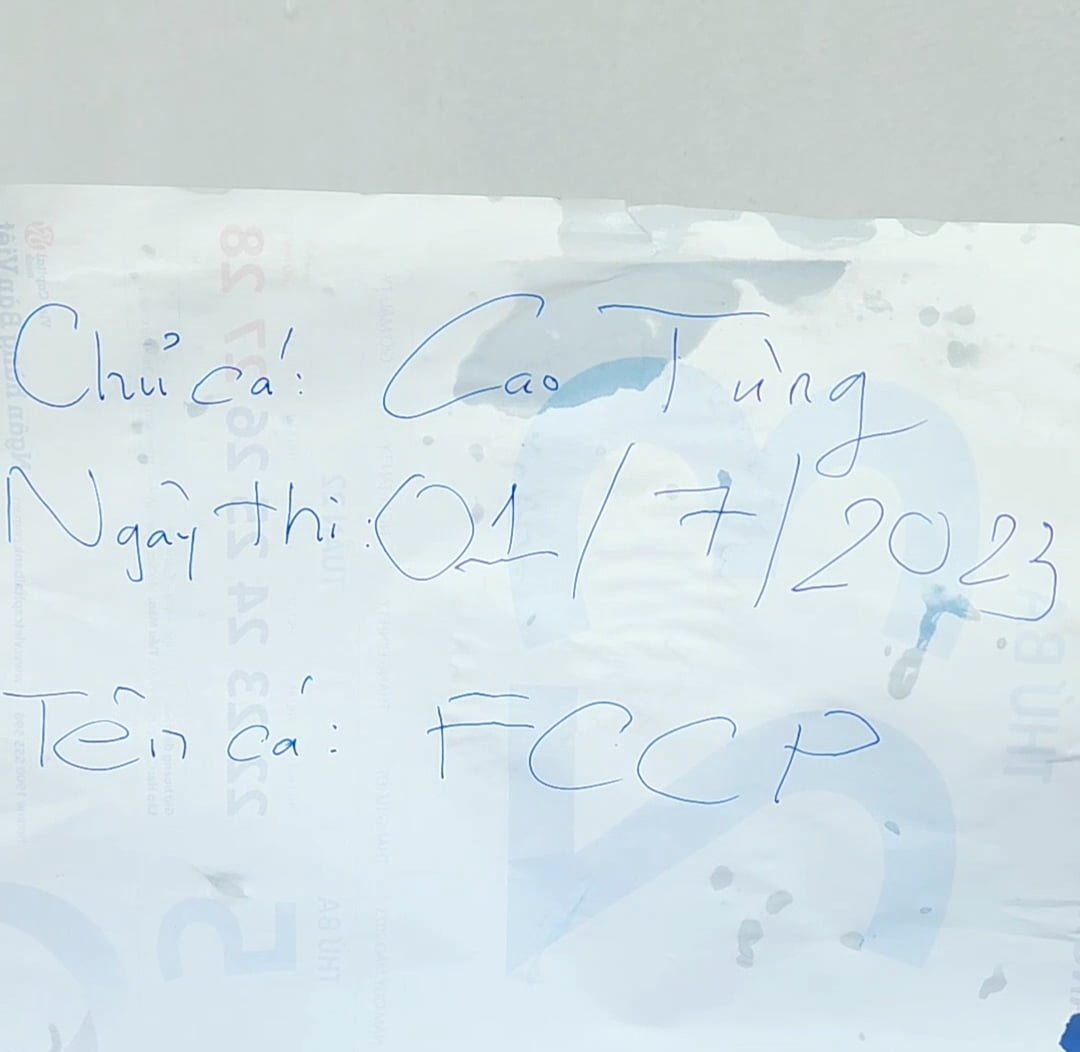 Chủ cá: Cao Tùng
Ngày thi: 01/7/2023
Tên cá: FCCP